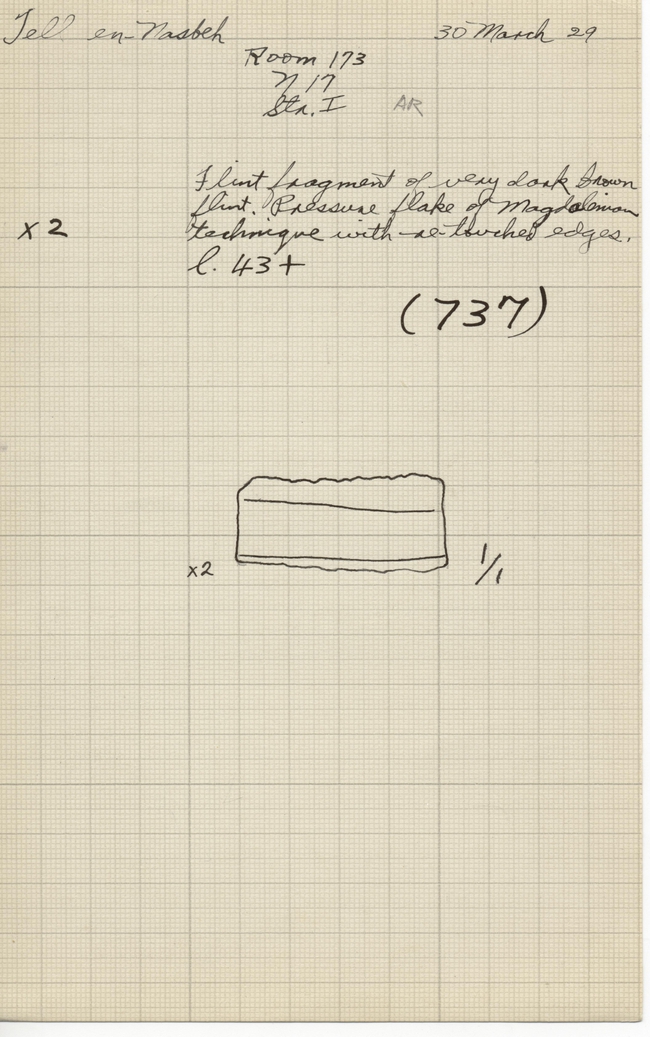 Tell en-Nasbeh 30 March 29
Room 173
N 17
Str. I AR
Flint fragment of very dark brown
flint. Pressure flake of Magdalenian
x 2 technique with re-touched edges.
l. 43 +
(737)
x2 1/1